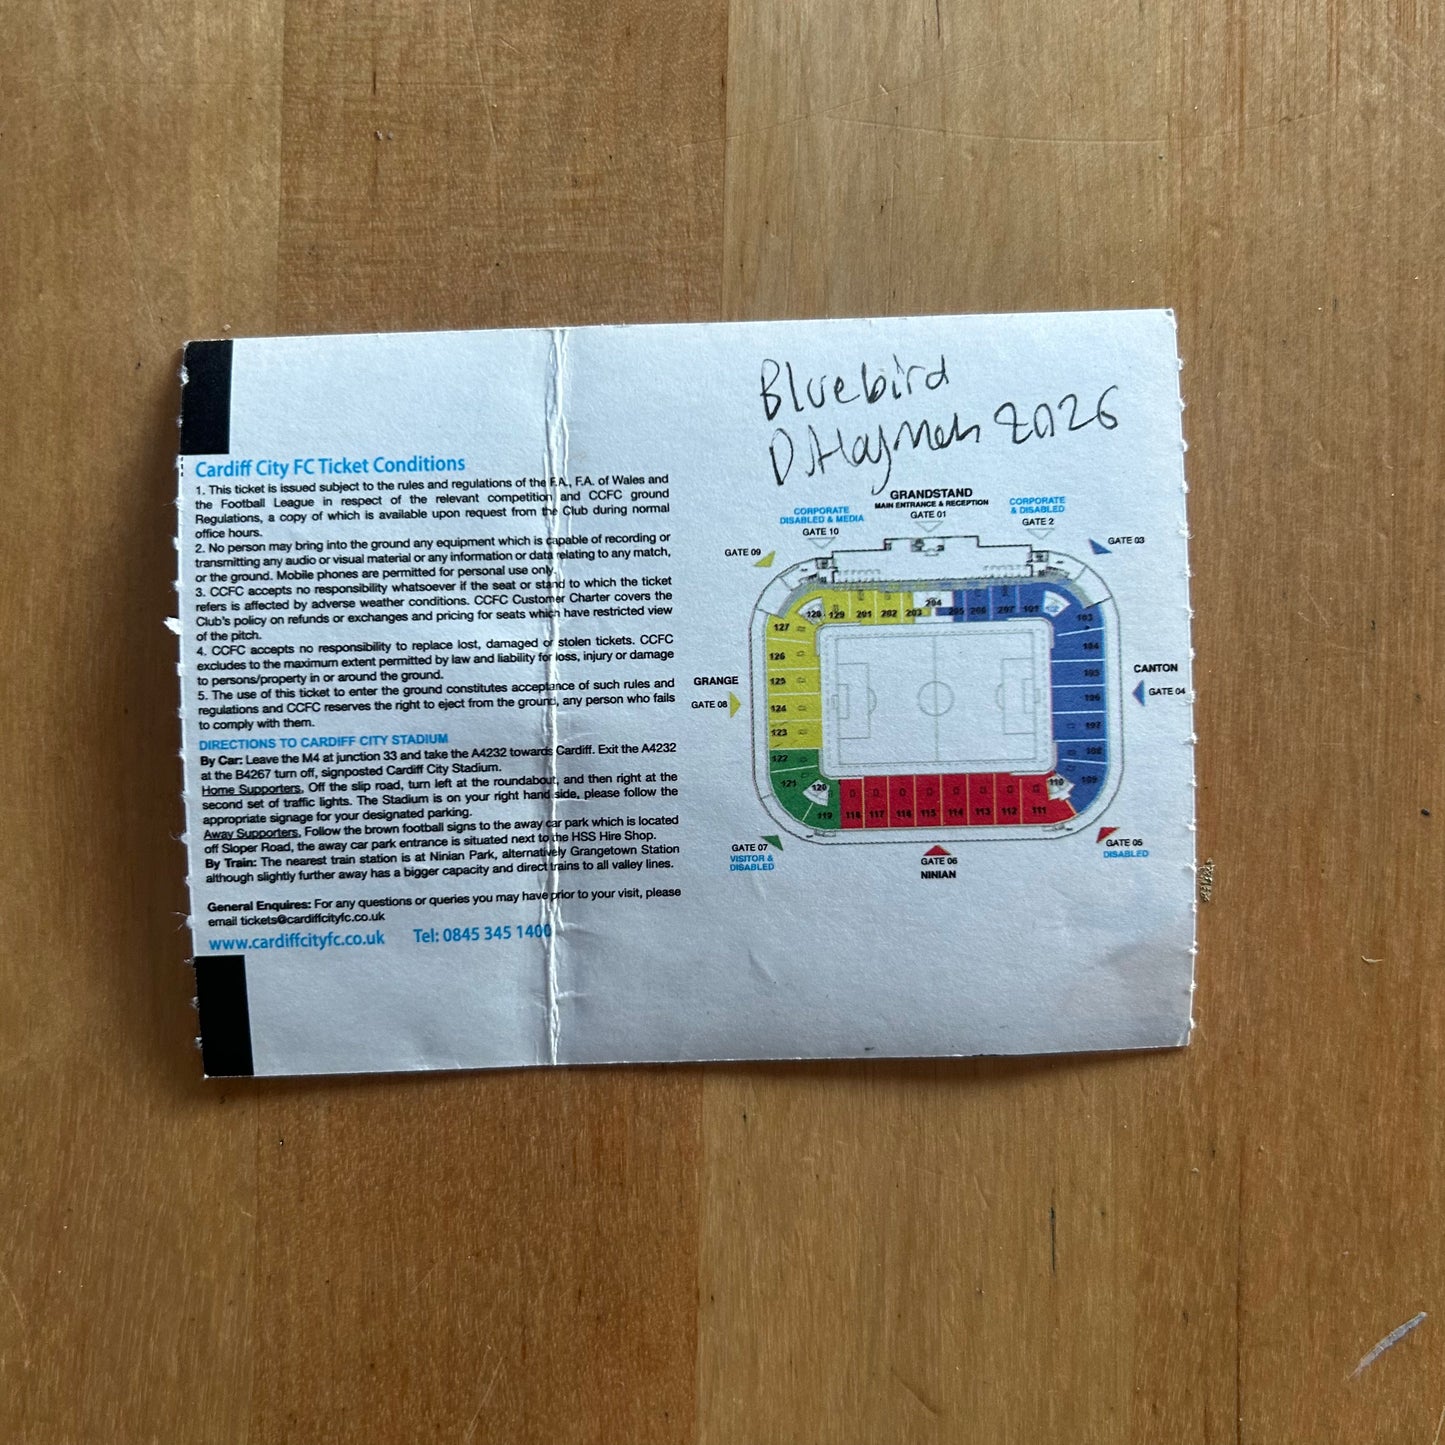 Bluebird
D Haymen 2026
Cardiff City FC Ticket Conditions
1. This ticket is issued subject to the rules and regulations of the F.A., F.A. of Wales and
the Football League in respect of the relevant competition and CCFC ground
Regulations, a copy of which is available upon request from the Club during normal
office hours.
2. No person may bring into the ground any equipment which is capable of recording or
transmitting any audio or visual material or any information or data relating to any match,
or the ground. Mobile phones are permitted for personal use only.
3. CCFC accepts no responsibility whatsoever if the seat or stand to which the ticket
refers is affected by adverse weather conditions. CCFC Customer Charter covers the
Club's policy on refunds or exchanges and pricing for seats which have restricted view
of the pitch.
4. CCFC accepts no responsibility to replace lost, damaged or stolen tickets. CCFC
excludes to the maximum extent permitted by law and liability for loss, injury or damage
to persons/property in or around the ground.
5. The use of this ticket to enter the ground constitutes acceptance of such rules and
regulations and CCFC reserves the right to eject from the ground, any person who fails
to comply with them.
DIRECTIONS TO CARDIFF CITY STADIUM
By Car: Leave the M4 at junction 33 and take the A4232 towards Cardiff. Exit the A4232
at the B4267 turn off, signposted Cardiff City Stadium.
Home Supporters, Off the slip road, turn left at the roundabout, and then right at the
second set of traffic lights. The Stadium is on your right hand side, please follow the
appropriate signage for your designated parking.
Away Supporters, Follow the brown football signs to the away car park which is located
off Sloper Road, the away car park entrance is situated next to the HSS Hire Shop.
By Train: The nearest train station is at Ninian Park, alternatively Grangetown Station
although slightly further away has a bigger capacity and direct trains to all valley lines.
General Enquires: For any questions or queries you may have prior to your visit, please
email tickets@cardiffcityfc.co.uk
www.cardiffcityfc.co.uk Tel: 0845 345 1400
GRANDSTAND
MAIN ENTRANCE & RECEPTION
GATE 01
CORPORATE
DISABLED & MEDIA
GATE 10
CORPORATE
& DISABLED
GATE 2
GATE 09
GATE 03
128 129 201 202 203 204 205 206 207 101
127
126
125
124
123
122
121
120
119
103
104
105
106
107
108
109
110
118 117 116 115 114 113 112 111
GRANGE
GATE 08
CANTON
GATE 04
GATE 07
VISITOR &
DISABLED
GATE 06
NINIAN
GATE 05
DISABLED